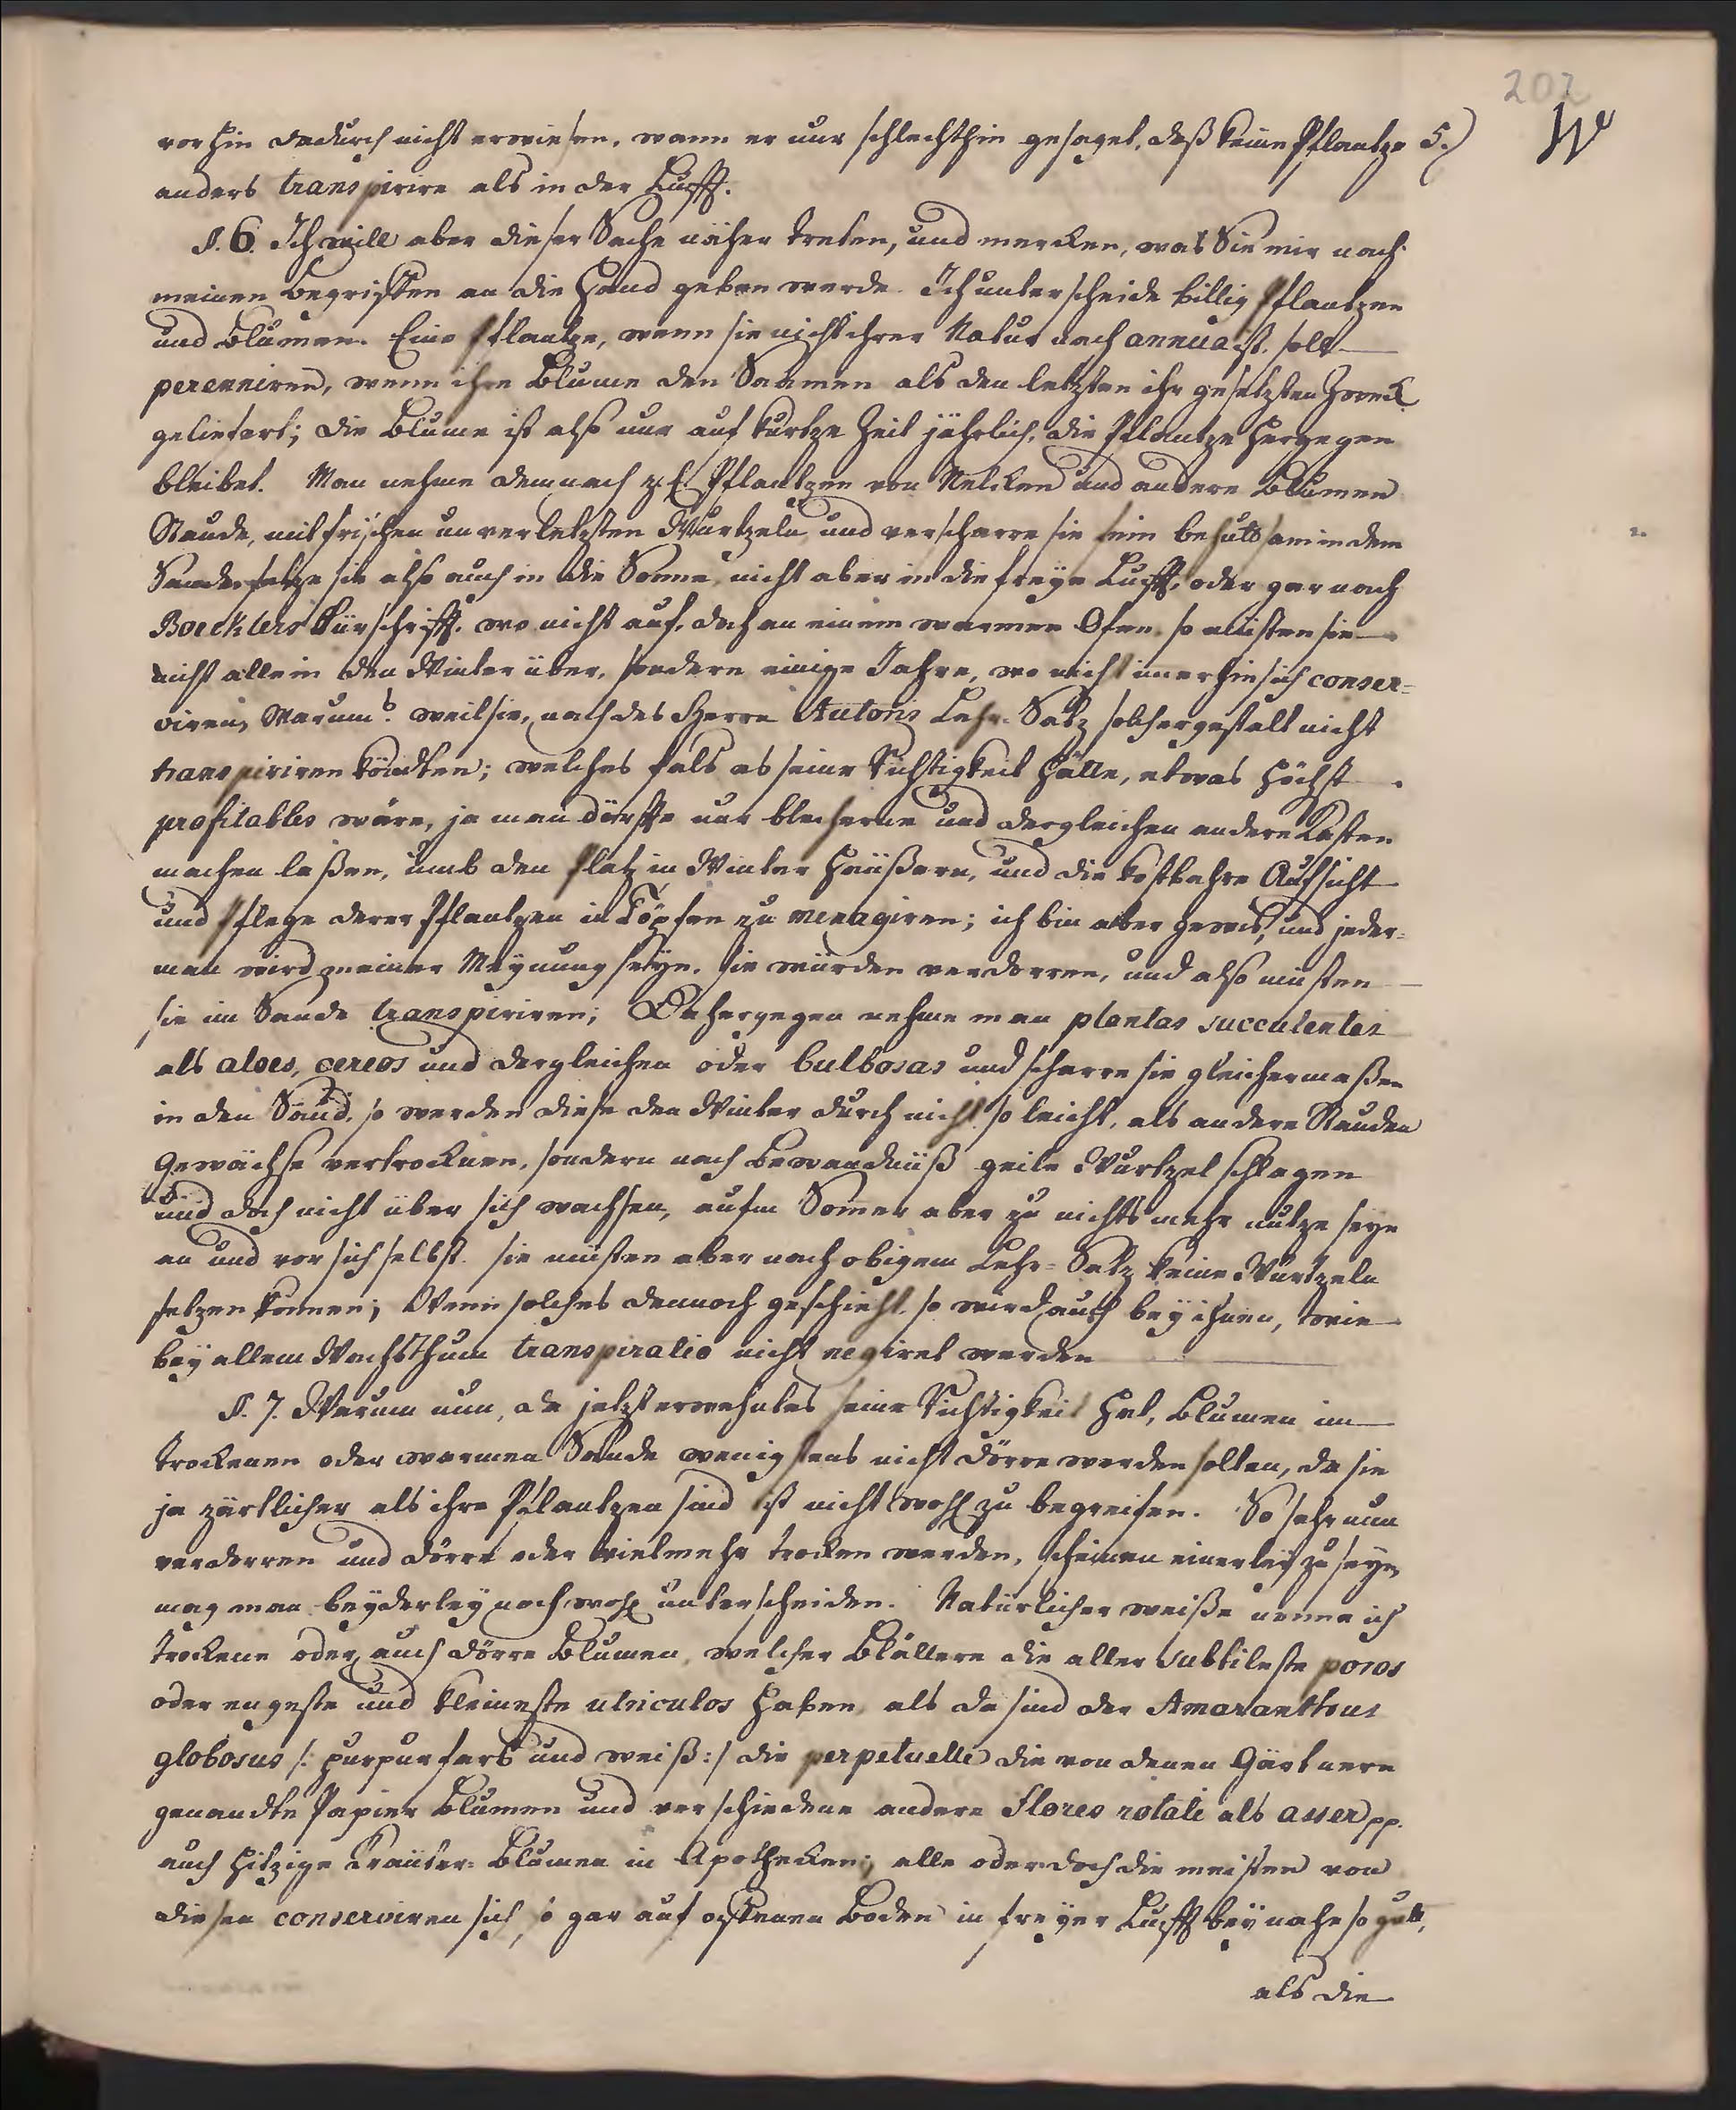 202
W
vorhin dadurch nicht erwiesen, wann er nur schlechthin gesaget, daß keine Pflantze 5.)
anders transpirire als in der Lufft.
§. 6. Ich will aber dieser Sache näher treten, und mercken, was Sie mir nach
meinen Begriffen an die Hand geben werde. Ich unterscheide billig Pflantzen
und Blumen. Eine Pflantze, wenn sie nicht ihrer Natur nach annua ist, soll
perenniren, wenn ihre Blume den Saamen als den letzten ihr gesetzten Zweck
geliefert; die Blume ist also nur auf kurtze Zeit jährlich, die Pflantze hergegen
bleibet. Man nehme demnach z. E. Pflantzen von Nelcken und andere Blumen
Staude, mit frischen unverletzten Wurtzeln und verscharre sie fein behutsam in dem
Sande, setze sie also auch in die Sonne, nicht aber in die freye Lufft, oder gar nach
Boecklers Fürschrifft, wo nicht auf, doch an einem warmen Ofen, so müsten sie
nicht allein den Winter über, sondern einige Jahre, wo nicht immerhin sich conser-
viren, Warum? weil sie, nach des Herrn Autoris Lehr-Satz solchergestalt nicht
transpiriren köndten; welches fals es seine Richtigkeit hätte, etwas höchst
profitables wäre, ja man dörffte nur blecherne und dergleichen andere Kasten
machen laßen, umb den Platz in Winter Häußern, und die kostbahre Aufsicht
und Pflege derer Pflantzen in Töpfen zu menagiren; ich bin aber gewis, und jeder-
man wird meiner Meynung seyn, sie würden verdorren, und also müsten
sie im Sande transpiriren; Dahergegen nehme man plantas succulentes
als aloes, cereos und dergleichen oder bulbosas und scharre sie gleichermaßen
in den Sand, so werden diese den Winter durch nicht so leicht, als andere Stauden
Gewächse vertrocknen, sondern nach Bewandnüß geile Wurtzel schlagen
und doch nicht über sich wachsen, aufm Sommer aber zu nichts mehr nutze seyn
an und vor sich selbst. sie müsten aber nach obigem Lehr-Satz keine Wurtzeln
setzen können; Wenn solches dennoch geschieht, so wird auch bey ihnen, wie
bey allem Wachsthum transpiratio nicht negiret werden
§. 7. Warum nun, da jetzt erwehntes seine Richtigkeit hat, Blumen im
trockenen oder warmen Sande wenigstens nicht dörre werden solten, da sie
ja zärtlicher als ihre Pflantzen sind ist nicht wohl zu begreifen. So sehr nun
verdorren und dörre oder vielmehr trocken werden, scheinen einerley zu seyn,
mag man beyderley noch wohl unterscheiden. Natürlicher weiße nenne ich
trockene oder auch dörre Blumen, welcher Blättere die aller subtileste poros
oder engeste und kleineste utriculos haben, als da sind der Amaranthus
globosus /: purpurfarb und weiß :/ die perpetuelle die von denen Gärtnern
genandte Papier Blumen und verschiedene andere Flores rotati als asser pp.
auch hitzige Kräuter-Blumen in Apothecken; alle oder doch die meisten von
diesen conserviren sich, so gar auf offenen Boden in freyer Lufft beynahe so gutt,
als die